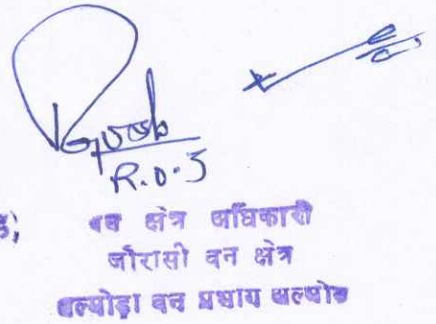 R.O.J
वन क्षेत्र अधिकारी
जौरासी वन क्षेत्र
अल्मोड़ा वन प्रभाग अल्मोड़ा